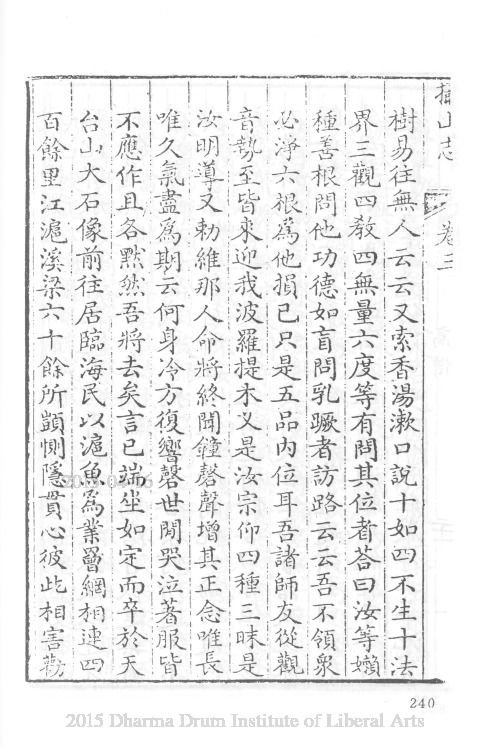 攝山志 卷三
樹易往無人云云又索香湯漱口說十如四不生十法
界三觀四教四無量六度等有問其位者荅曰汝等嬾
種善根問他功德如盲問乳蹶者訪路云云吾不領衆
必淨六根爲他損己只是五品內位耳吾諸師友從觀
音勢至皆來迎我波羅提木叉是汝宗仰四種三昧是
汝明導又勅維那人命將終聞鐘磬聲增其正念唯長
唯久氣盡爲期云何身冷方復響磬世間哭泣著服皆
不應作且各默然吾將去矣言已端坐如定而卒於天
台山大石像前往居臨海民以滬魚爲業罾網相連四
百餘里江滬溪梁六十餘所顗惻隱貫心彼此相害勸
240
2015 Dharma Drum Institute of Liberal Arts